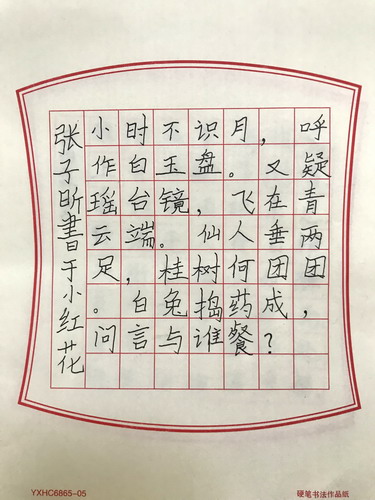 小时不识月，呼
作白玉盘。又疑
瑶台镜，飞在青
云端。仙人垂两
足，桂树何团团
。白兔捣药成，
问言与谁餐？
张子昕書于小红花
YXHC6865-05
硬笔书法作品纸